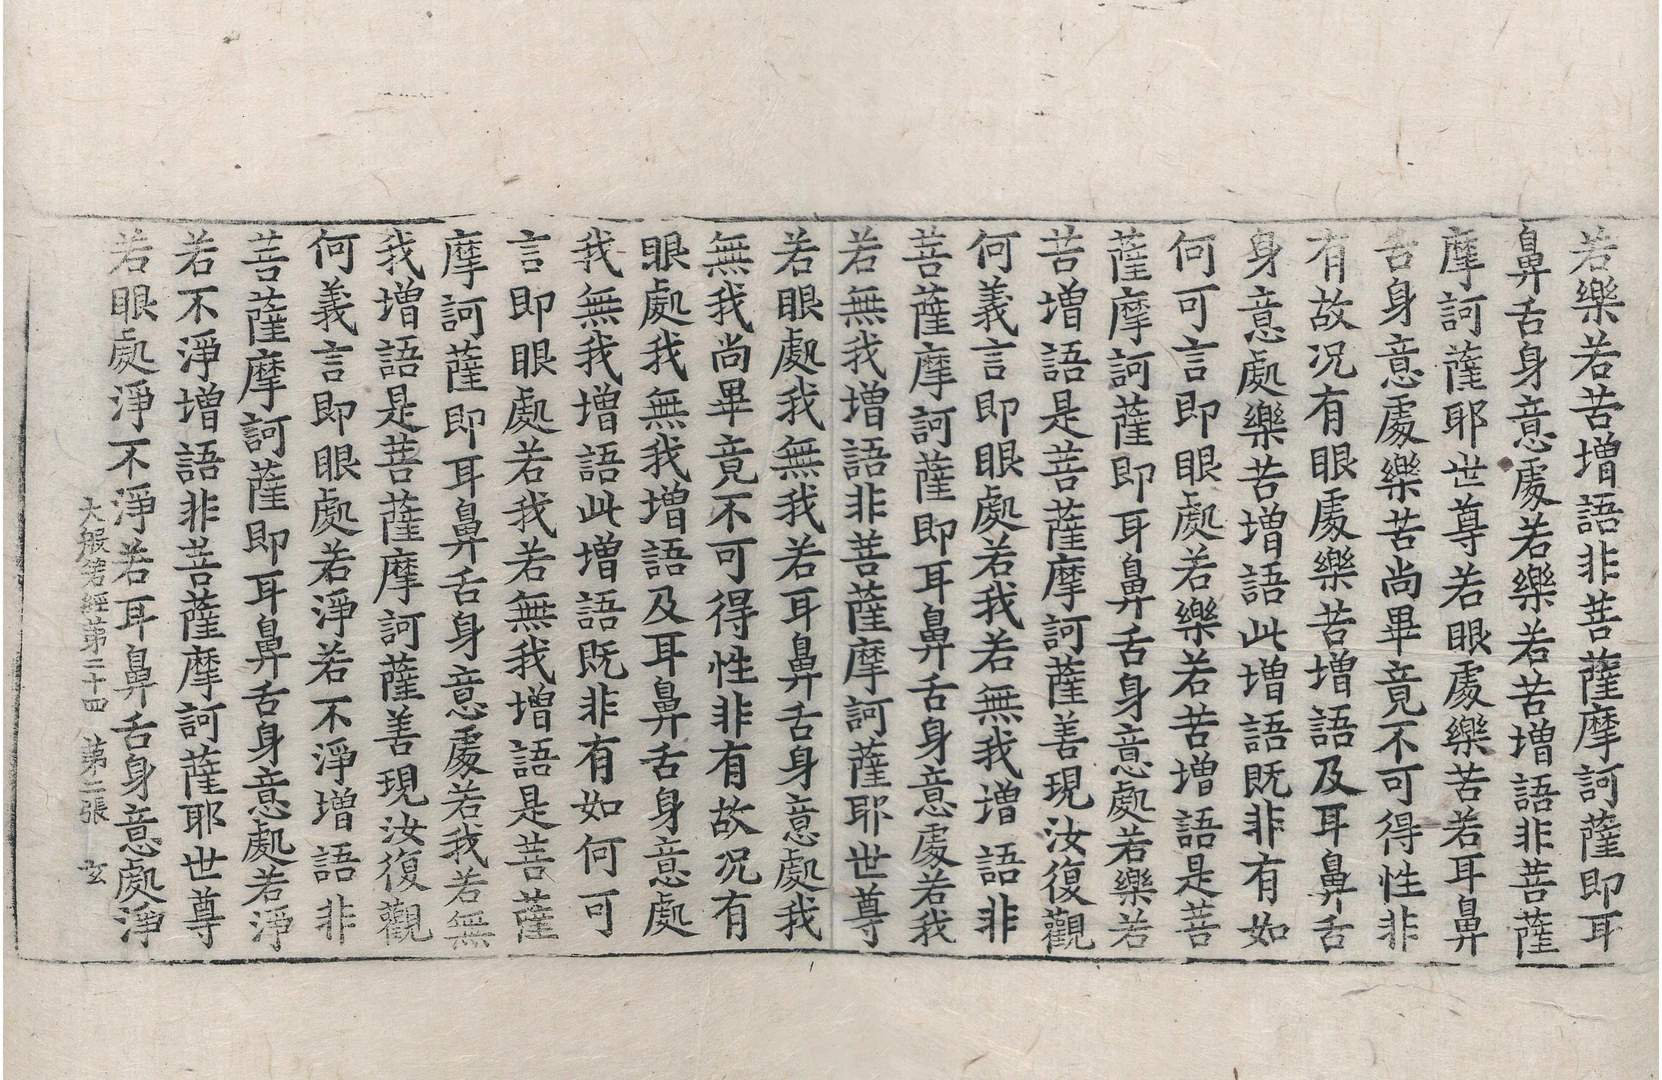 若樂若苦增語非菩薩摩訶薩即耳
鼻舌身意處若樂若苦增語非菩薩
摩訶薩耶世尊若眼處樂苦若耳鼻
舌身意處樂苦尚畢竟不可得性非
有故况有眼處樂苦增語及耳鼻舌
身意處樂苦增語此增語既非有如
何可言即眼處若樂若苦增語是菩
薩摩訶薩即耳鼻舌身意處若樂若
苦增語是菩薩摩訶薩善現汝復觀
何義言即眼處若我若無我增語非
菩薩摩訶薩即耳鼻舌身意處若我
若無我增語非菩薩摩訶薩耶世尊
若眼處我無我若耳鼻舌身意處我
無我尚畢竟不可得性非有故况有
眼處我無我增語及耳鼻舌身意處
我無我增語此增語既非有如何可
言即眼處若我若無我增語是菩薩
摩訶薩即耳鼻舌身意處若我若無
我增語是菩薩摩訶薩善現汝復觀
何義言即眼處若淨若不淨增語非
菩薩摩訶薩即耳鼻舌身意處若淨
若不淨增語非菩薩摩訶薩耶世尊
若眼處淨不淨若耳鼻舌身意處淨
大般若經第二十四 第二張 玄